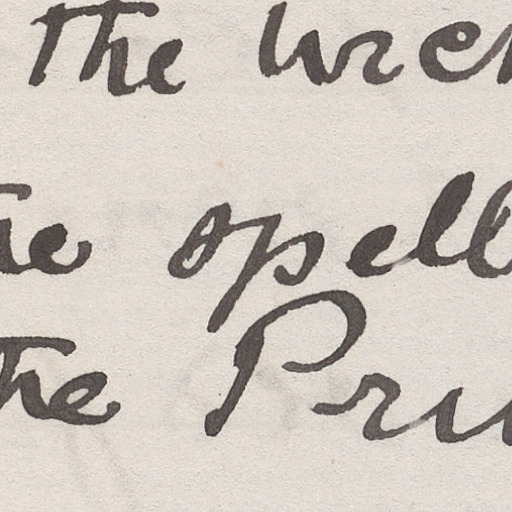 the wren
he spell
the Pru